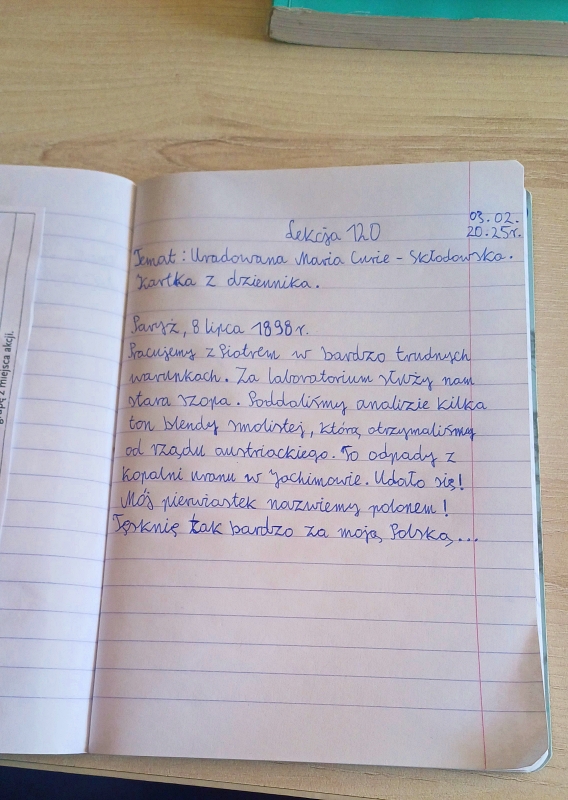 grupę z miejsca akcji.
03.02.
20.25r.
Lekcja 120
Temat: Uradowana Maria Curie - Skłodowska.
Kartka z dziennika.
Paryż, 8 lipca 1898r.
Pracujemy z Piotrem w bardzo trudnych
warunkach. Za laboratorium służy nam
stara szopa. Poddaliśmy analizie kilka
ton blendy smolistej, którą otrzymaliśmy
od rządu austriackiego. To odpady z
kopalni uranu w Jachimowie. Udało się!
Mój pierwiastek nazwiemy polonem!
Tęsknię tak bardzo za moją Polską...